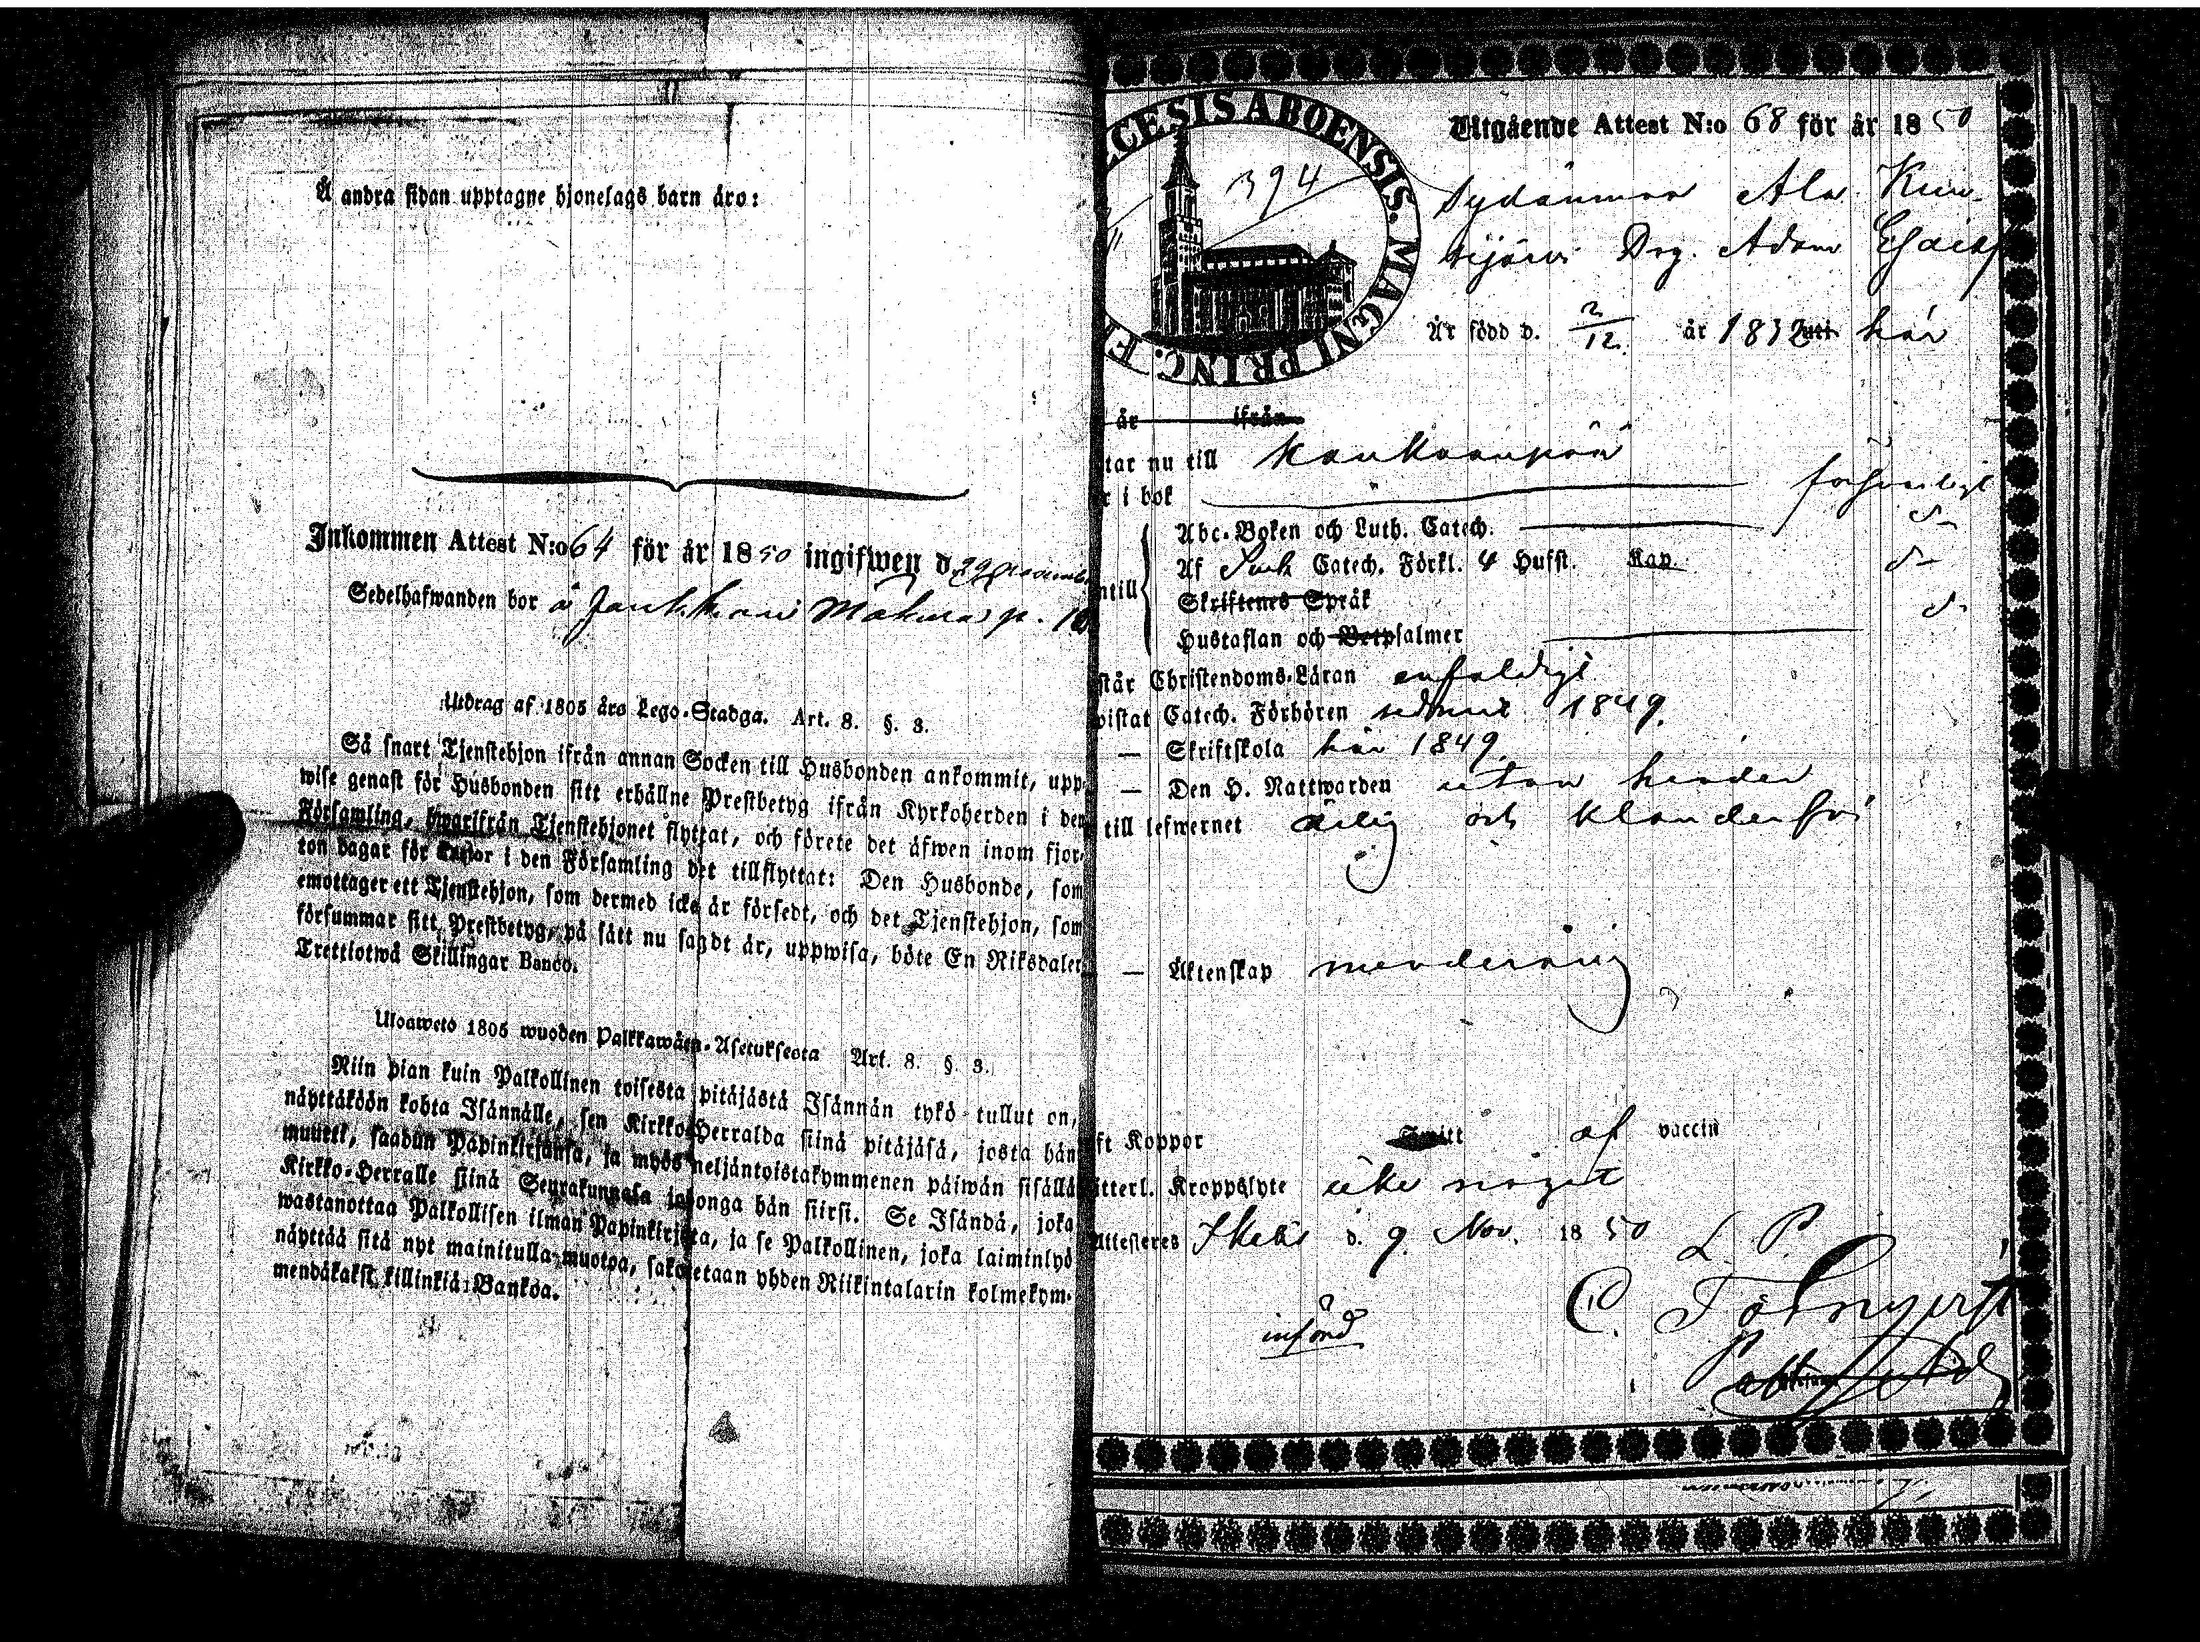 Å andra sidan upptagne hjonelags barn äro:
Inkommen Attest N:o 64 för år 1850 ingifwen d. 29
Sedelhafwanden bor å
Utdrag af 1805 års Lego-Stadga. Art. 8. §. 3.
Så snart Tjenstehjon ifrån annan Socken till Husbonden ankommit, upp-
wise genast för Husbonden sitt erhållne Prestbetyg ifrån Kyrkoherden i den
Församling, hwarifrån Tjenstehjonet flyttat, och förete det äfwen inom fjor-
ton dagar för i den Församling det tillflyttat: Den Husbonde, som
emottager ett Tjenstehjon, som dermed icke är försedt, och det Tjenstehjon, som
försummar sitt Prestbetyg, på sätt nu sagdt är, uppwisa, böte En Riksdaler
Trettiotwå Skillingar Banco.
Uloswetö 1805 wuoden Palkkawäen-Asetuksesta Art. 8. §. 3.
Niin pian kuin Palkollinen toisesta pitäjästä Isännän tykö tullut on,
näyttäköön kohta Isännälle, sen Kirkko-Herralda siinä pitäjäsä, josta hän
muutti, saadun Papinkirjansa, ja myös neljäntoistakymmenen päiwän sisällä
Kirkko-Herralle siinä Seurakunnasa johonga hän siirsi. Se Isändä, joka
wastanottaa Palkollisen ilman Papinkirjata, ja se Palkollinen, joka laiminlyö
näyttää sitä nyt mainitulla muotoa, sakoitetaan yhden Riikintalarin kolmekym-
mendäkaksi killinkiä Bankoa.
CESIS ABOENSIS. MAGNI PRINC. F
394
Utgående Attest N:o 68 för år 1850
Sydänmaa Ala Kuu-
skijärvi Drg. Adam
Är född d. 2/12 år 1832 här
år ifrån
tar nu till Kankaanpää
r i bok försvarligt
Abc-Boken och Luth. Catech. d-
Af Catech. Förkl. & Husst. Kap. d-
ntill Skriftenes Språk
Hustaflan och Botpsalmer d-
står Christendoms-Läran enfaldigt
vistat Catech. Förhören sednast 1849.
— Skriftskola här 1849
— Den H. Nattwarden utan hinder
till lefwernet ärlig och klanderfri
— Äktenskap
ft Koppor af vaccin
tterl. Kroppslyte icke något
Attesteres d. 9. Nov. 1850
införd